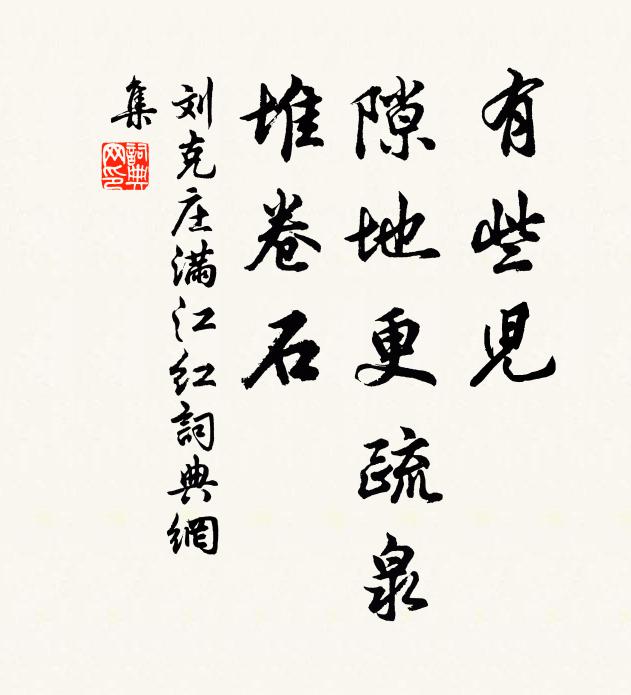 有些児
隙地更疏泉
堆卷石
刘克庄满江红詞典網
集
詞典
网印